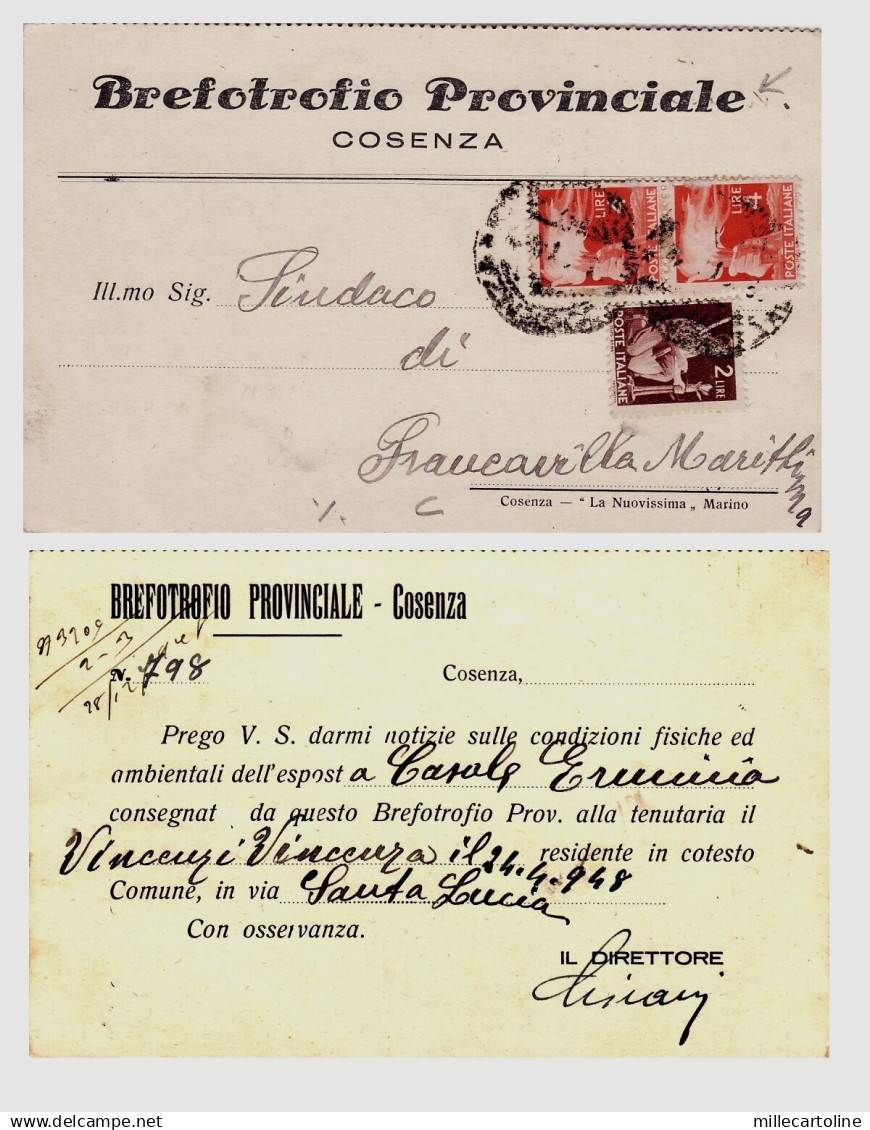 Brefotrofio Provinciale
COSENZA
LIRE 4 POSTE ITALIANE
LIRE 4 POSTE ITALIANE
Ill.mo Sig. Sindaco
2 LIRE POSTE ITALIANE
di
Francavilla Marittima
Cosenza — “ La Nuovissima „ Marino
BREFOTROFIO PROVINCIALE - Cosenza
2-3
N. 798 Cosenza,
Prego V. S. darmi notizie sulle condizioni fisiche ed
ambientali dell'espost a Casole Erminia
consegnat da questo Brefotrofio Prov. alla tenutaria il
Vincenzi Vincenza il 24.4.948 residente in cotesto
Comune, in via Santa Lucia
Con osservanza.
IL DIRETTORE
delcampe.net
millecartoline